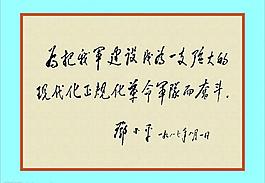 为把我军建设成为一支强大的
现代化正规化革命军队而奋斗.
邓小平 一九八七年八月一日